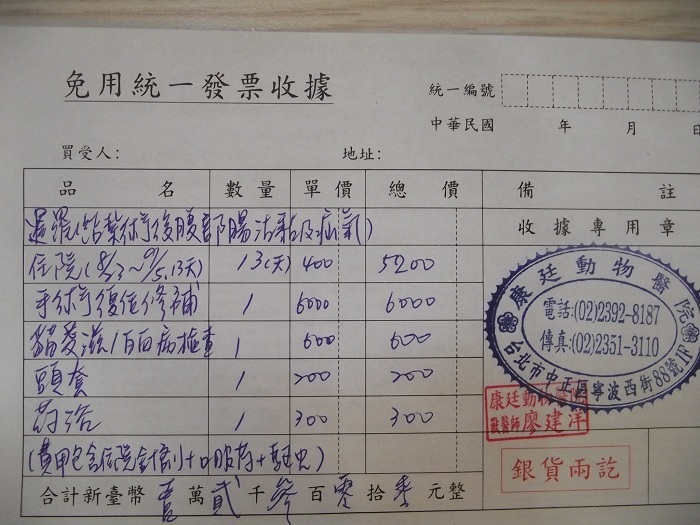 免用統一發票收據
統一編號
中華民國 年 月 日
買受人: 地址:
品 名 數 量 單 價 總 價 備 註
後腹部腸沾黏及疝氣)
收據專用章
住院(8/3~ 13天) 13(天) 400 5200
手術復位修補 1 6000 6000
貓愛滋/白血病檢查 1 600 600
頭套 1 200 200
藥浴 1 300 300
(費用包含住院針劑+口服藥+驅蟲)
合計新臺幣 壹 萬 貳 千 參 百 零 拾 零 元整
康廷動物醫院
電話:(02)2392-8187
傳真:(02)2351-3110
台北市中正區寧波西街88號1F
康廷動物醫院
獸醫師廖建洋
銀貨兩訖